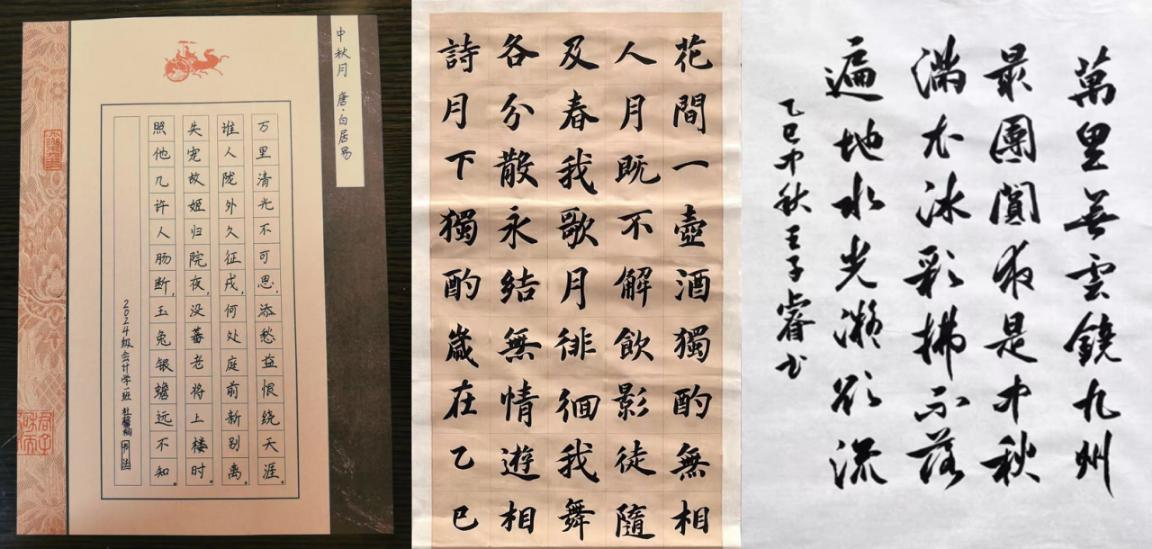 中秋月 唐·白居易
万里清光不可思,添愁益恨绕天涯。
谁人陇外久征戍,何处庭前新别离。
失宠故姬归院夜,没蕃老将上楼时。
照他几许人肠断,玉兔银蟾远不知。
2024级会计学一班
花間一壺酒獨酌無相
人月既不解飲影徒隨
及春我歌月徘徊我舞
各分散永結無情遊相
詩月下獨酌歲在乙巳
萬里無雲鏡九州
最團圓夜是中秋
滿衣冰彩拂不落
遍地水光凝欲流
乙巳中秋王子睿书